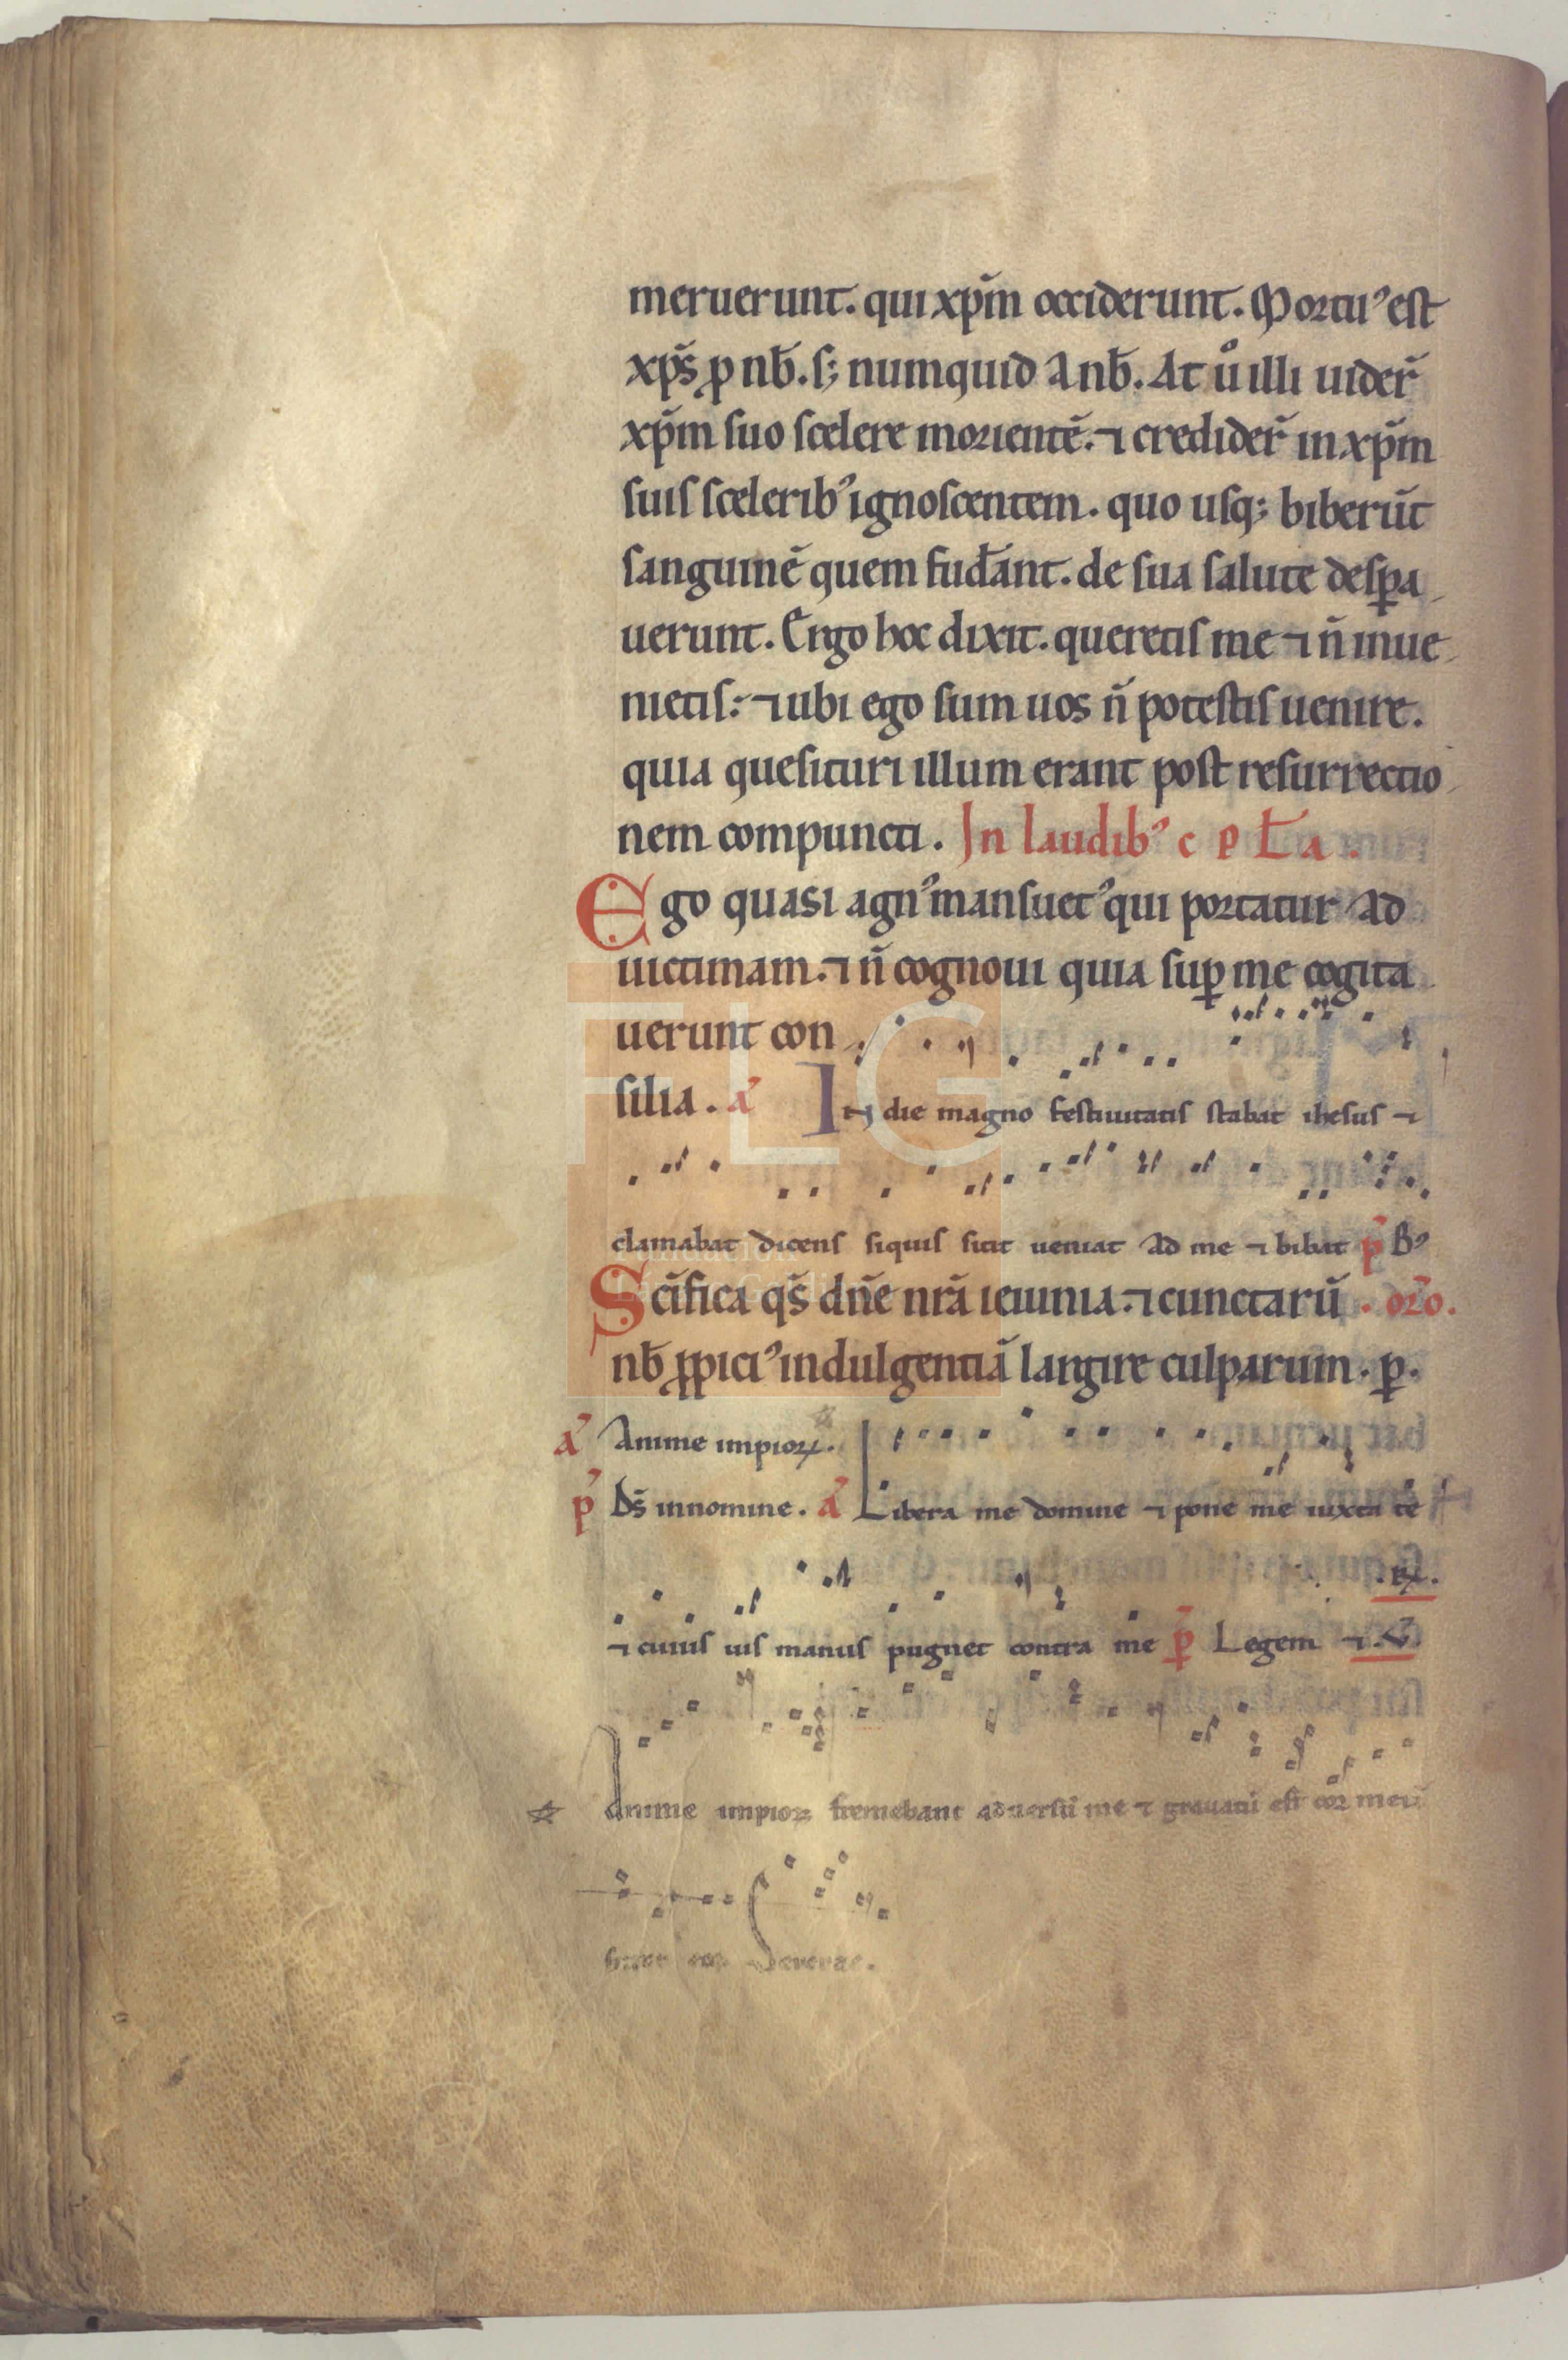 meruerunt. qui xp̄m occiderunt. Mortuꝰ est
xp̄s ꝓ nb̄. s; numquid a nb̄. At uͦ illi uider̄
xp̄m suo scelere morientē. ⁊ crediderˉ in xp̄m
suis sceleribꝰ ignoscentem. quo usq; biberūt
sanguinē quem fud̄ant. de sua salute despa
uerunt. Ergo hoc dixit. queretis me ⁊ n̄ inue
nietis: ⁊ ubi ego sum uos n̄ potestis uenire.
quia quesituri illum erant post resurrectio
nem compuncti. In laudibꝰ c p Ła.
Ego quasi agnꝰ mansuetꝰ qui portatur ad
uictimam. ⁊ n̄ cognoui quia suꝑ me cogita
uerunt con
silia. a᷎ In die magno festiuitatis stabat ihesus ⁊
clamabat dicens siquis sitit ueniat ad me ⁊ bibat p̄ Bꝰ
Sc̄ifica qs̄ dn̄e nrā ieiunia. ⁊ cunctarū. or̄o.
nb̄ ꝓpiciꝰ indulgentiā largire culparum. ꝑ.
a᷎ Anime impioꝝ.
p̄ Ds̄ innomine. a᷎ Libera me domine ⁊ pone me iuxta te
.℟.
⁊ cuius uis manus pugnet contra me ꝑ̄ Legem ⁊ .V.
Anime impioꝝ fremebant aduersū me ⁊ grauatū est cor meū